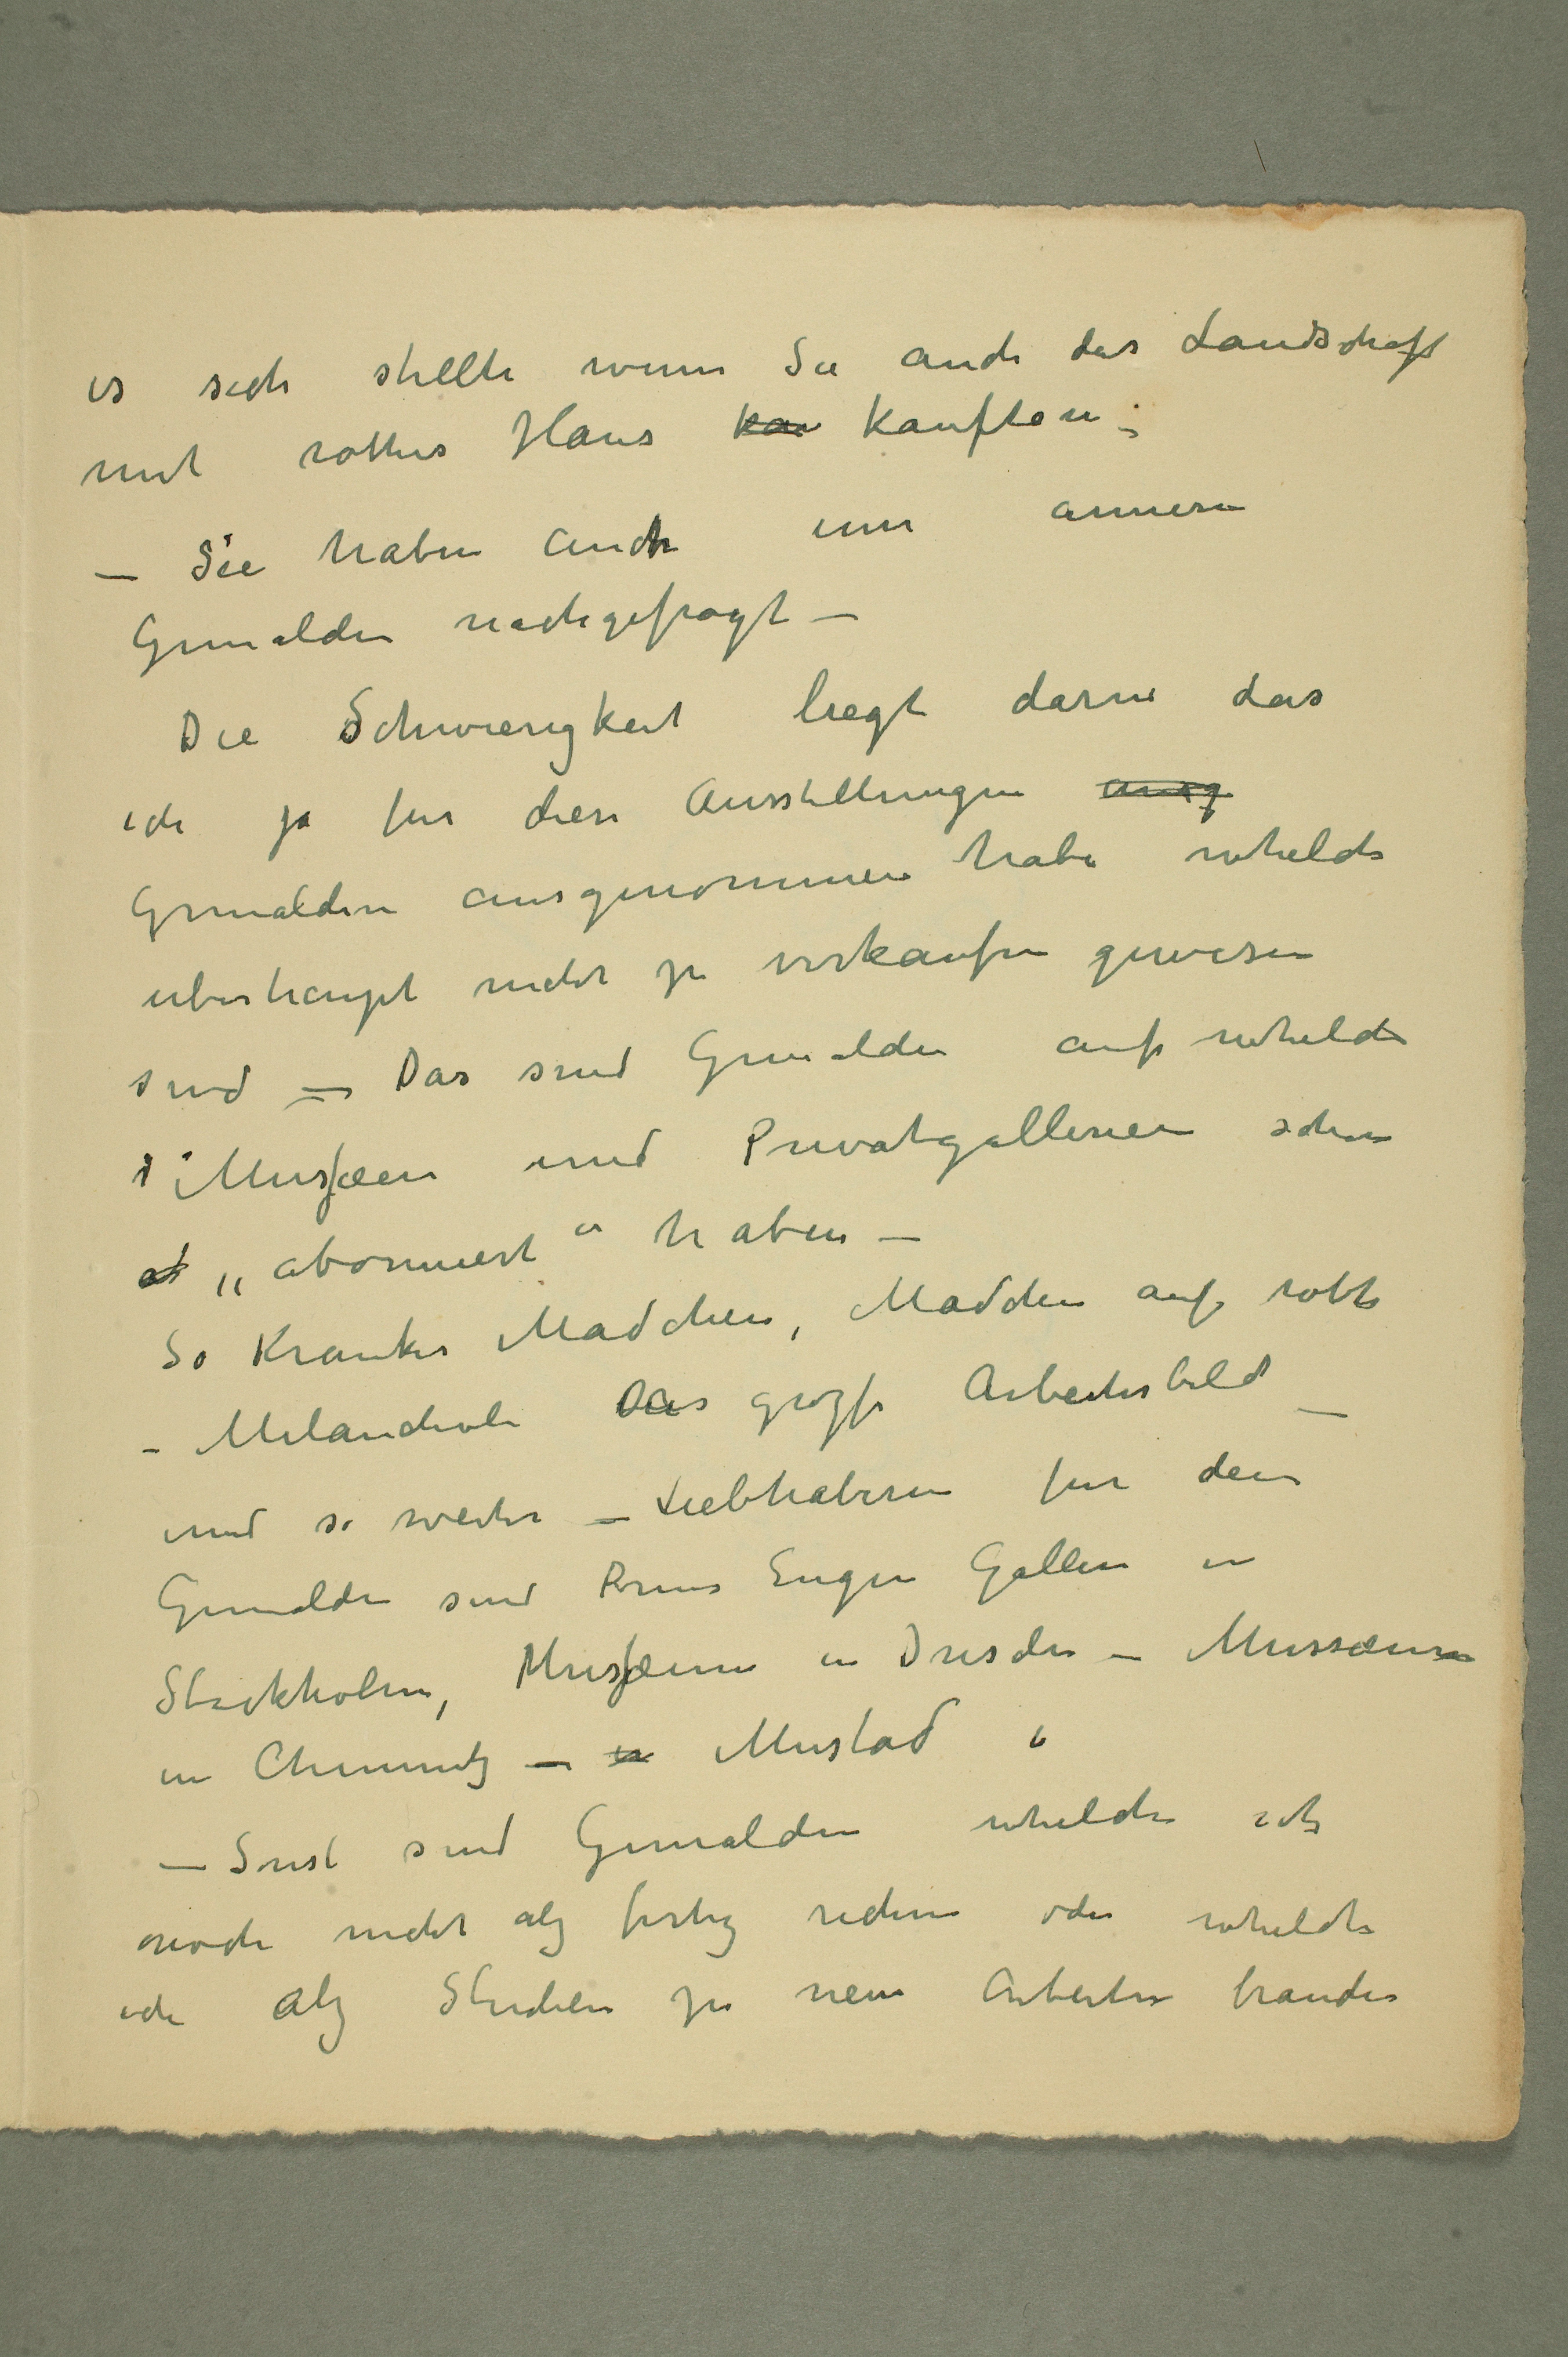 es sich stellte wenn Sie auch das Landschaft
mit rothes Haus kau kauften –
– Sie haben auch um anneren
Gemälden nachgefragt –
Die Schwierigkeit liegt darin das
ich ja für diese Ausstellungen
Gemälden ausgenommen habe whelche
überhaupt nicht zu verkaufen gewesen
sind – Das sind Gemälden auf whelche
Musæen und Privatgallerien schon
„abonniert“ haben –
So Krankes Mädchen, Mädchen auf rothe
– Melancholie Das grozse Arbeiterbild –
und so weiter – Liebhaberen für den
Gemälden sind Prins Eugen Gallerie in
Stockholm, Musæum in Dresden – Mussæum
in Chemnitz – in Mustad
– Sonst sind Gemälden whelche ich
noch nicht alz fertig rechne oder whelche
ich alz Studien zu neue Arbeiten brauche